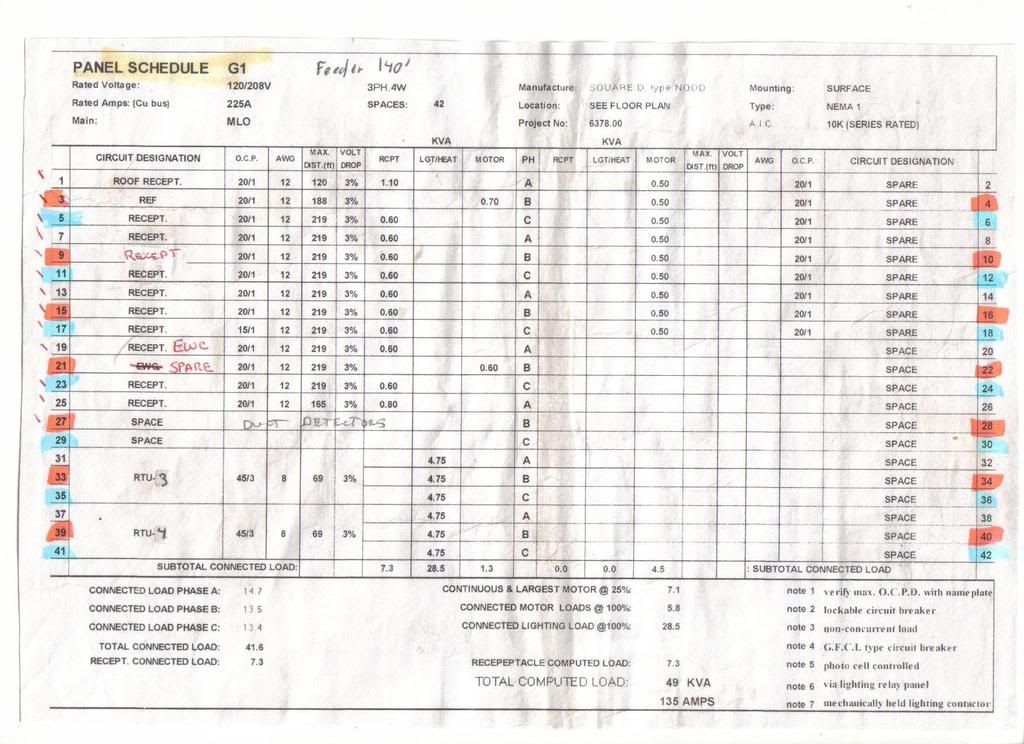 PANEL SCHEDULE G1 Feeder 140'
Rated Voltage: 120/208V 3PH,4W Manufacture: SQUARE D, type NOOD Mounting: SURFACE
Rated Amps: (Cu bus) 225A SPACES: 42 Location: SEE FLOOR PLAN Type: NEMA 1
Main: MLO Project No: 6378.00 A.I.C. 10K (SERIES RATED)
KVA KVA
CIRCUIT DESIGNATION O.C.P. AWG MAX. DIST.(ft) VOLT DROP RCPT LGT/HEAT MOTOR PH RCPT LGT/HEAT MOTOR MAX. DIST.(ft) VOLT DROP AWG O.C.P. CIRCUIT DESIGNATION
1 ROOF RECEPT. 20/1 12 120 3% 1.10 A 0.50 20/1 SPARE 2
3 REF 20/1 12 188 3% 0.70 B 0.50 20/1 SPARE 4
5 RECEPT. 20/1 12 219 3% 0.60 C 0.50 20/1 SPARE 6
7 RECEPT. 20/1 12 219 3% 0.60 A 0.50 20/1 SPARE 8
9 RECEPT 20/1 12 219 3% 0.60 B 0.50 20/1 SPARE 10
11 RECEPT. 20/1 12 219 3% 0.60 C 0.50 20/1 SPARE 12
13 RECEPT. 20/1 12 219 3% 0.60 A 0.50 20/1 SPARE 14
15 RECEPT. 20/1 12 219 3% 0.60 B 0.50 20/1 SPARE 16
17 RECEPT. 15/1 12 219 3% 0.60 C 0.50 20/1 SPARE 18
19 RECEPT. EWC 20/1 12 219 3% 0.60 A SPACE 20
21 EWC SPARE 20/1 12 219 3% 0.60 B SPACE 22
23 RECEPT. 20/1 12 219 3% 0.60 C SPACE 24
25 RECEPT. 20/1 12 165 3% 0.80 A SPACE 26
27 SPACE Duct DETECTORS B SPACE 28
29 SPACE C SPACE 30
31 4.75 A SPACE 32
33 RTU-3 45/3 8 69 3% 4.75 B SPACE 34
35 4.75 C SPACE 36
37 4.75 A SPACE 38
39 RTU-4 45/3 8 69 3% 4.75 B SPACE 40
41 4.75 C SPACE 42
SUBTOTAL CONNECTED LOAD: 7.3 28.5 1.3 0.0 0.0 4.5 : SUBTOTAL CONNECTED LOAD
CONNECTED LOAD PHASE A: 14.7 CONTINUOUS & LARGEST MOTOR @ 25%: 7.1 note 1 verify max. O.C.P.D. with nameplate
CONNECTED LOAD PHASE B: 13.5 CONNECTED MOTOR LOADS @ 100%: 5.8 note 2 lockable circuit breaker
CONNECTED LOAD PHASE C: 13.4 CONNECTED LIGHTING LOAD @100%: 28.5 note 3 non-concurrent load
TOTAL CONNECTED LOAD: 41.6 note 4 G.F.C.I. type circuit breaker
RECEPT. CONNECTED LOAD: 7.3 RECEPEPTACLE COMPUTED LOAD: 7.3 note 5 photo cell controlled
TOTAL COMPUTED LOAD: 49 KVA note 6 via lighting relay panel
135 AMPS note 7 mechanically held lighting contactor